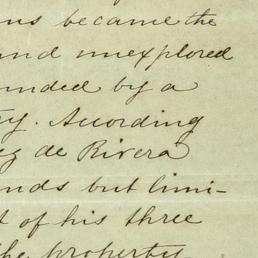 ns became the
and unexplored
unded by a
ty. According
ez de Rivera
nds but limi-
t of his three
the property